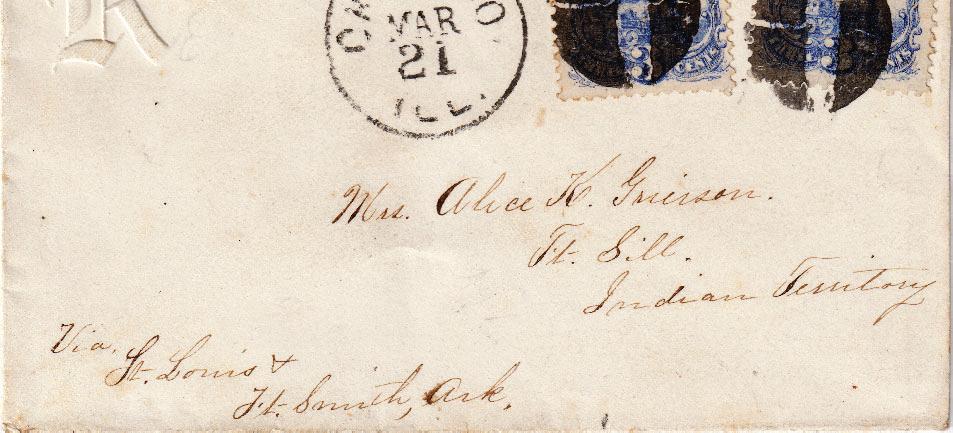 K
MAR
21
ILL.
CENTS
CENTS
Mrs. Alice K. Grierson.
Ft. Sill.
Indian Territory
Via.
St. Louis &
Ft. Smith, Ark,